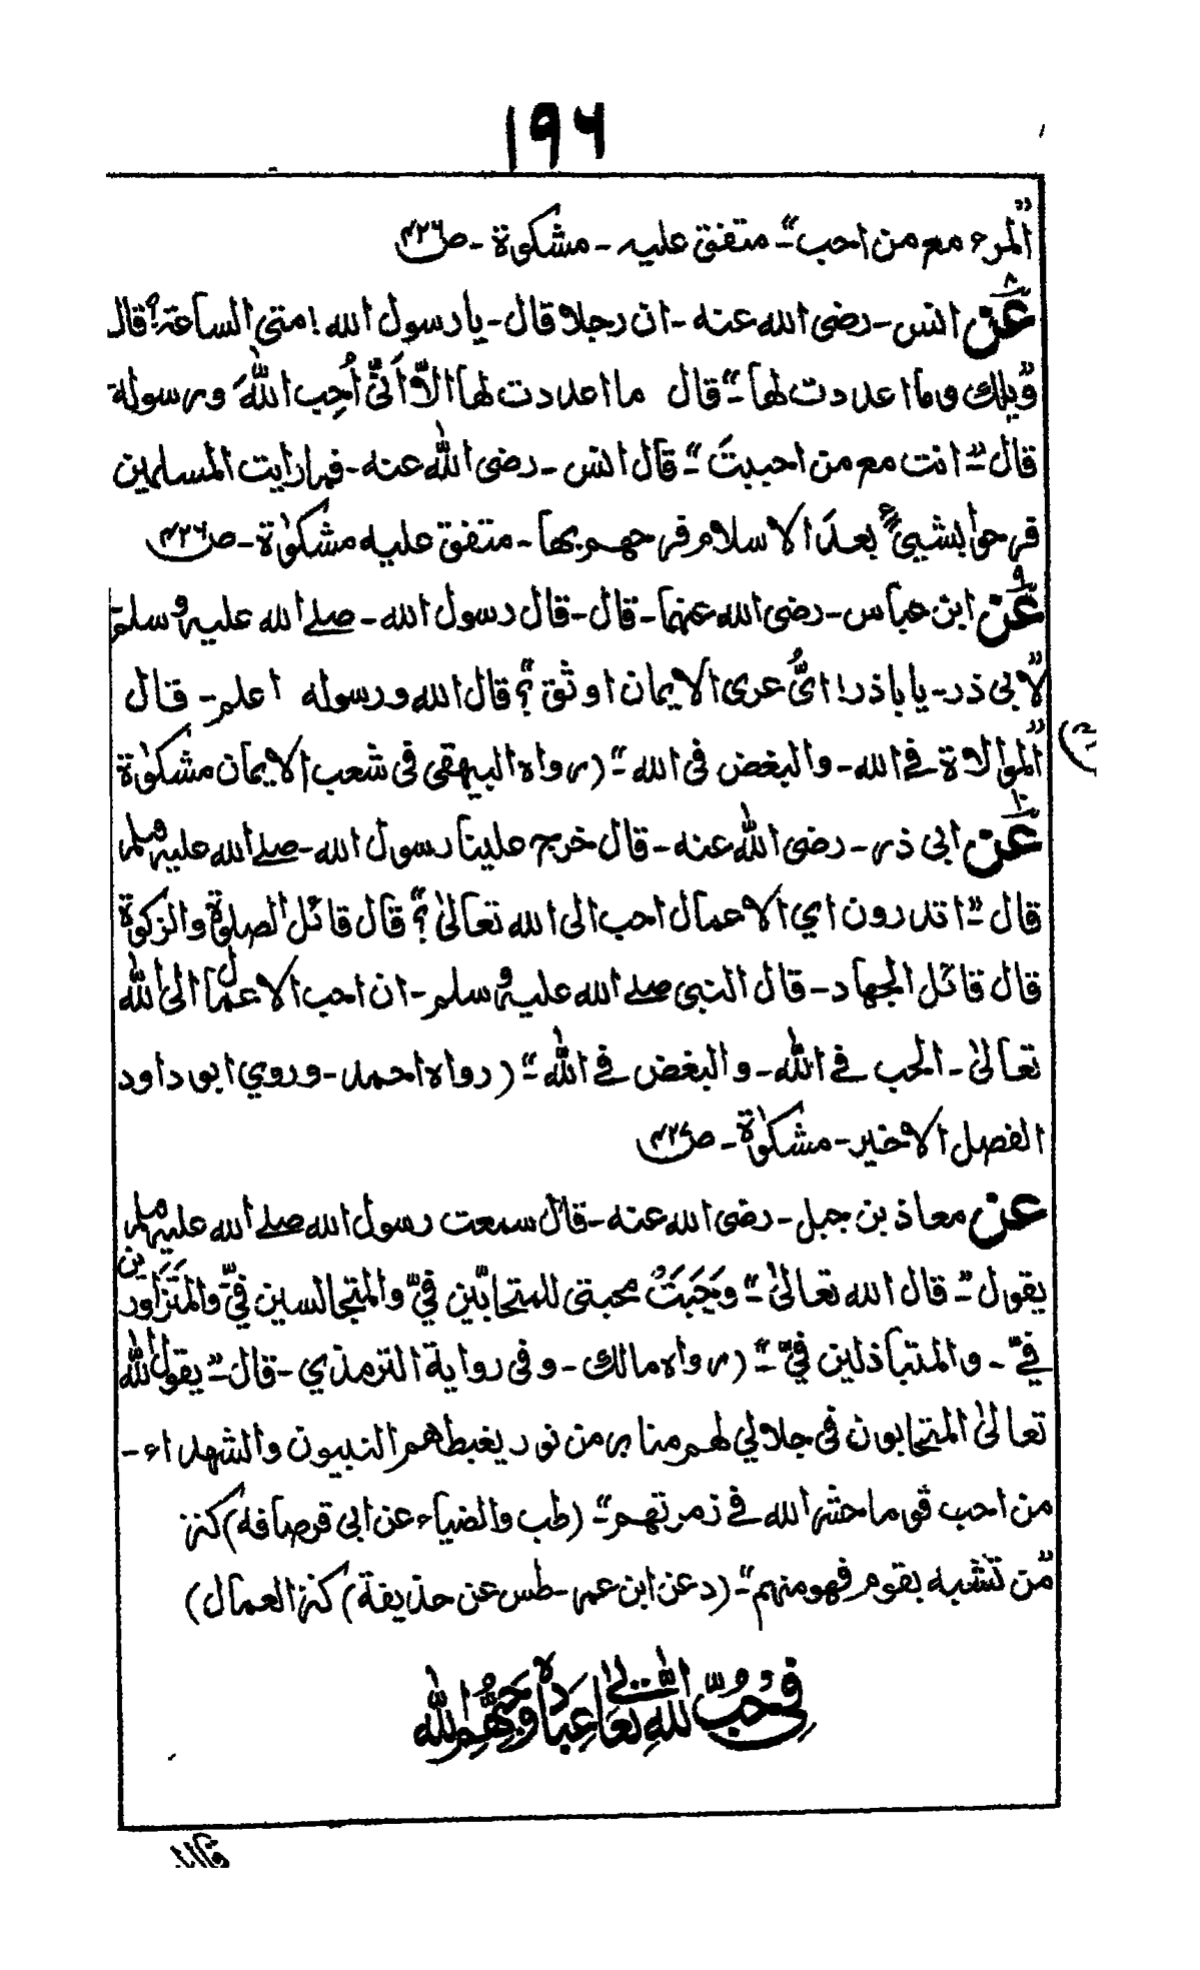 ۱۹۶
"المرء مع من احب"۔ متفق علیه ۔ مشکوة ۔ ص۴۲۶
۸ عن انس ۔ رضی الله عنه ۔ ان رجلا قال ۔ یا رسول الله! متی الساعة؟ قال
"ویلك وما اعددت لها"۔ قال ما اعددت لها الّا اَنّی اُحِب اللهَ ورسوله
قال۔ "انت مع من احببتَ"۔ قال انس ۔ رضی الله عنه ۔ فما رایت المسلمین
فرحوا بشیئ بعدَ الاسلام فرحهم بها ۔ متفق علیه مشکوٰة ۔ ص۴۲۶
۹ عن ابن عباس ۔ رضی الله عنهما ۔ قال ۔ قال رسول الله ۔ صلے الله علیه وسلم
"لابی ذر ۔ یا باذر! ایُّ عری الایمان اوثق؟" قال الله ورسوله اعلم ۔ قال
"الموالاة فے الله ۔ والبغض فی الله"۔ (رواه البیهقی فی شعب الایمان مشکوٰة
۱۰ عن ابی ذر ۔ رضی الله عنه ۔ قال خرج علینا رسول الله ۔ صلے الله علیه وسلم
قال۔ "اتدرون ای الاعمال احب الی الله تعالیٰ؟" قال قائل الصلوة والزکوة
قال قائل الجهاد ۔ قال النبی صلے الله علیه وسلم ۔ ان احب الاعمال الی الله
تعالیٰ ۔ الحب فے الله ۔ والبغض فے الله"۔ (رواه احمد ۔ وروي ابو داود
الفصل الاخیر ۔ مشکوٰة ۔ ص۴۲۷
عن معاذ بن جبل ۔ رضی الله عنه ۔ قال سمعت رسول الله صلے الله علیه وسلم
یقول۔ "قال الله تعالیٰ۔ "وَجَبَتْ محبتی للمتحابّین فيّ والمتجالسین فيّ والمتَزَاورین
فيّ ۔ والمتباذلین فيّ"۔ (رواه مالك ۔ وفی روایة الترمذي ۔ قال۔ "یقول الله
تعالیٰ المتحابون فی جلالي لهم منابر من نور یغبطهم النبیون والشهداء ۔
من احب قوما حشره الله فے زمرتهم"۔ (طب والضیاء عن ابی قرصافه) کنز
"من تشبه بقوم فهو منهم"۔ (د عن ابن عمر ۔ طس عن حذیفة) کنز العمال)
فِی حُبِّ اللهِ تعالیٰ عِبَادَه وحُبِّهِم لله